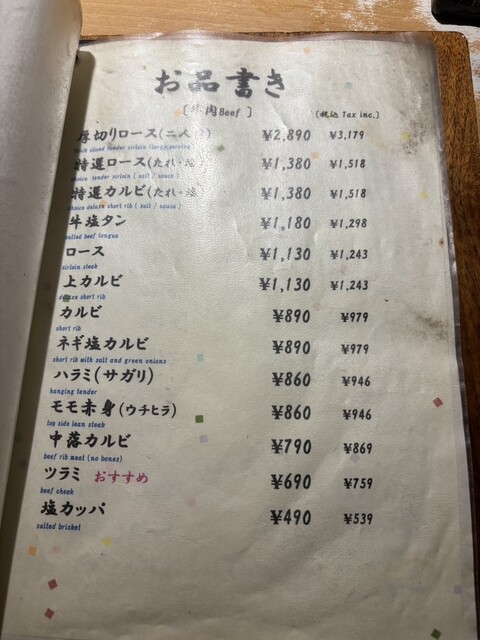 お品書き
[牛肉Beef] [税込 Tax inc.]
厚切りロース(二人前) ¥2,890 ¥3,179
thick sliced tender sirloin (large serving
特選ロース(たれ・塩) ¥1,380 ¥1,518
choice tender sirloin ( salt / sauce )
特選カルビ(たれ・塩) ¥1,380 ¥1,518
choice deluxe short rib ( salt / sauce )
牛塩タン ¥1,180 ¥1,298
salted beef tongue
ロース ¥1,130 ¥1,243
sirloin steak
上カルビ ¥1,130 ¥1,243
deluxe short rib
カルビ ¥890 ¥979
short rib
ネギ塩カルビ ¥890 ¥979
short rib with salt and green onions
ハラミ(サガリ) ¥860 ¥946
hanging tender
モモ赤身(ウチヒラ) ¥860 ¥946
top side lean steak
中落カルビ ¥790 ¥869
beef rib meat (no bones)
ツラミ おすすめ ¥690 ¥759
beef cheek
塩カッパ ¥490 ¥539
salted brisket